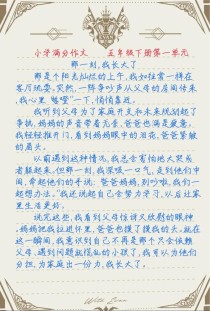 小学满分作文 五年级下册第一单元
那一刻,我长大了
那是个阳光灿烂的上午,我如往常一样在
客厅玩耍。突然,一阵争吵声从父母的房间传来
,我心里“咯噔”一下,悄悄靠近。
我听到父母为了家庭开支和未来规划起了
争执,妈妈的声音带着无奈,爸爸也满是疲惫。
我轻轻推开门,看到妈妈眼中的泪花,爸爸紧皱
的眉头。
以前遇到这种情况,我总会害怕地大哭或
者躲起来。但那一刻,我深吸一口气,走到他们中
间,牵起他们的手说:“爸爸妈妈,别吵啦,我们一
起想办法。”我还说起自己会努力学习,以后让家
里生活更好。
说完这些,我看到父母惊讶又欣慰的眼神
。妈妈把我拉进怀里,爸爸也摸了摸我的头。就在
这一瞬间,我意识到自己不再是那个只会依赖
父母,遇到问题就慌乱的小孩了,我可以为他们
分担,为家庭出一份力,我长大了。